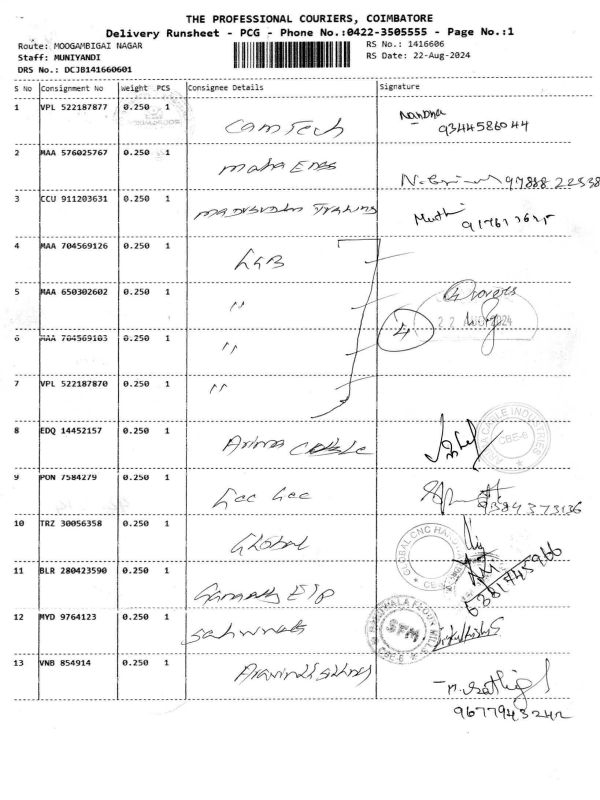 THE PROFESSIONAL COURIERS, COIMBATORE
Delivery Runsheet - PCG - Phone No.:0422-3505555 - Page No.:1
Route: MOOGAMBIGAI NAGAR
RS No.: 1416606
Staff: MUNIYANDI
RS Date: 22-Aug-2024
DRS No.: DCJB141660601
S No Consignment No Weight PCS Consignee Details Signature
1 VPL 522187877 0.250 1 Camtech Nandha
9344586044
2 MAA 576025767 0.250 1 Maha
3 CCU 911203631 0.250 1
4 MAA 704569126 0.250 1 LGB
5 MAA 650302602 0.250 1 "
22 AUG 2024
4
6 MAA 704569103 0.250 1 "
7 VPL 522187870 0.250 1 "
8 EDQ 14452157 0.250 1
CABLE INDUSTRIES
CBE-6
9 PON 7584279 0.250 1 Gee Gee
10 TRZ 30056358 0.250 1 Global
GLOBAL CNC
11 BLR 280423590 0.250 1
12 MYD 9764123 0.250 1
SFM
CBE-6
13 VNB 854914 0.250 1